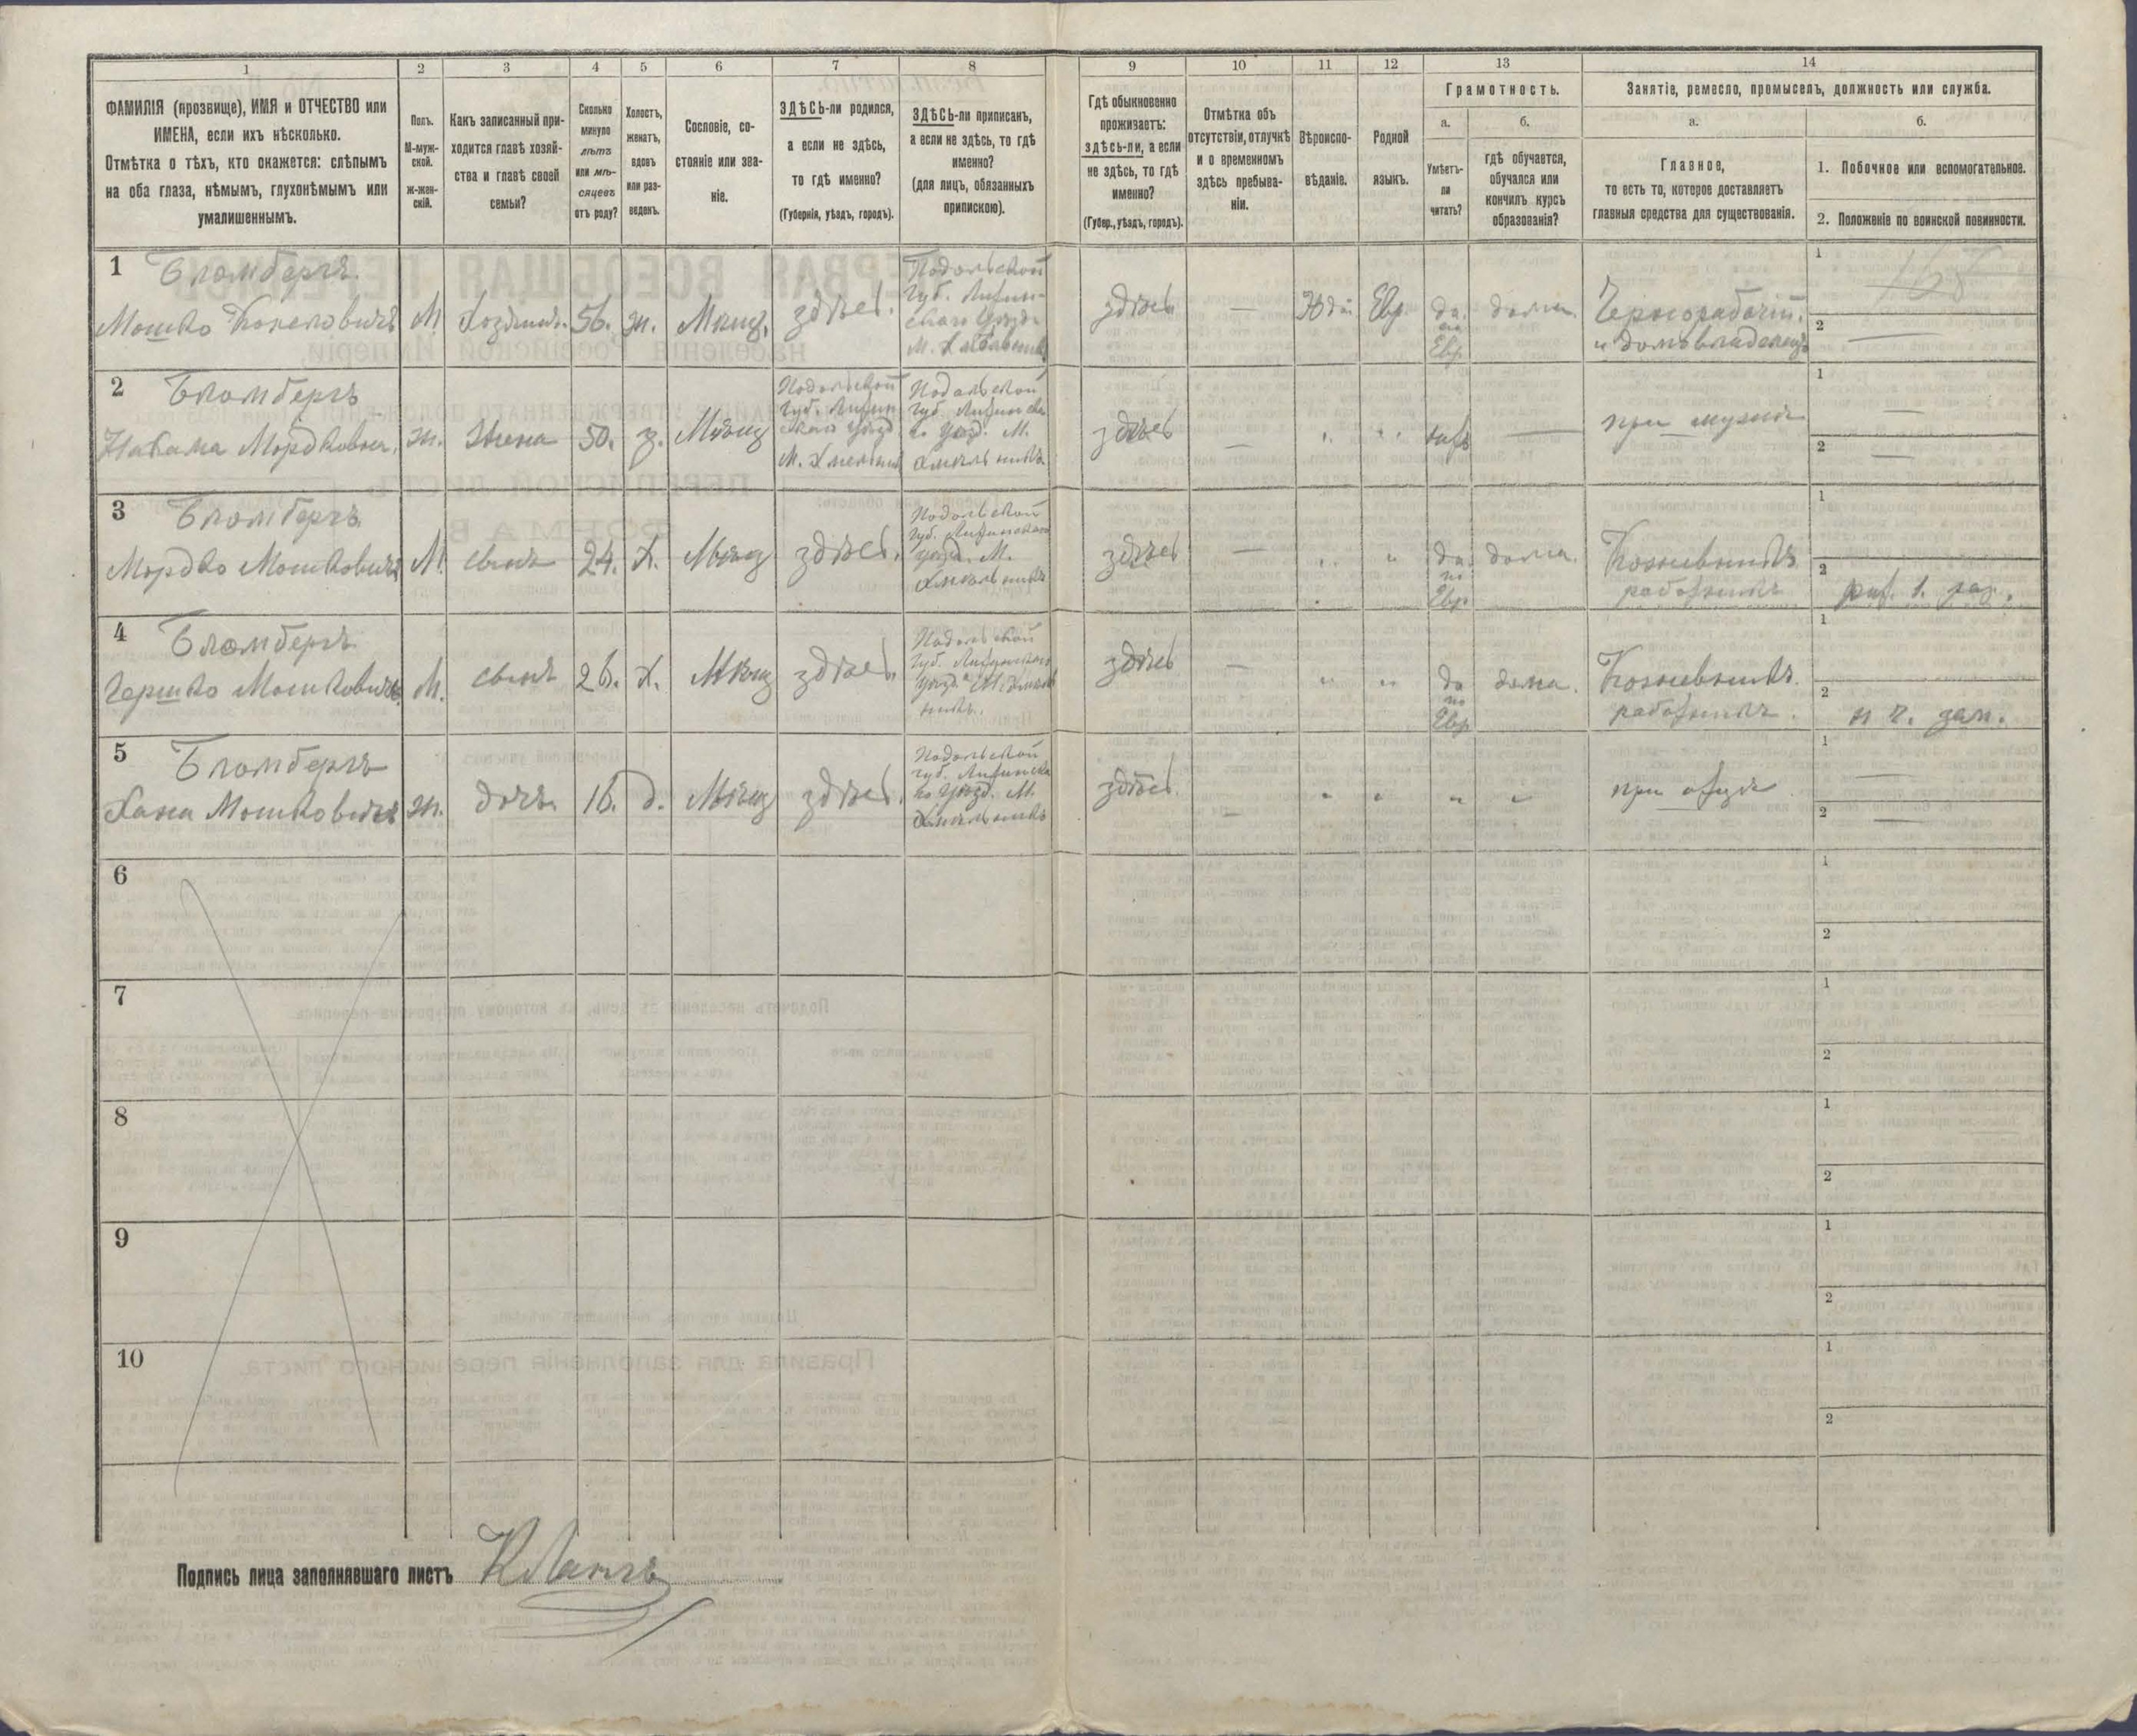 1
2
3
4
5
6
7
8
9
10
11
12
13
14
ФАМИЛІЯ (прозвище), ИМЯ и ОТЧЕСТВО или
ИМЕНА, если ихъ нѣсколько.
Отмѣтка о тѣхъ, кто окажется: слѣпымъ
на оба глаза, нѣмымъ, глухонѣмымъ или
умалишеннымъ.
Полъ.
М-муж-
ской.
Ж-жен-
скій.
Какъ записанный при-
ходится главѣ хозяй-
ства и главѣ своей
семьи?
Сколько
минуло
лѣтъ
или мѣ-
сяцевъ
отъ роду?
Холостъ,
женатъ,
вдовъ
или раз-
веденъ.
Сословіе, со-
стояніе или зва-
ніе.
ЗДѢСЬ-ли родился,
а если не здѣсь,
то гдѣ именно?
(Губернія, уѣздъ, городъ).
ЗДѢСЬ-ли приписанъ,
а если не здѣсь, то гдѣ
именно?
(для лицъ, обязанныхъ
припискою).
Гдѣ обыкновенно
проживаетъ:
здѣсь-ли, а если
не здѣсь, то гдѣ
именно?
(Губер., уѣздъ, городъ).
Отмѣтка объ
отсутствіи, отлучкѣ
и о временномъ
здѣсь пребыва-
ніи.
Вѣроиспо-
вѣданіе.
Родной
языкъ.
Грамотность.
а.
Умѣетъ-
ли
читать?
б.
гдѣ обучается,
обучался или
кончилъ курсъ
образованія?
Занятіе, ремесло, промыселъ, должность или служба.
а.
Главное,
то есть то, которое доставляетъ
главныя средства для существованія.
б.
1. Побочное или вспомогательное.
2. Положеніе по воинской повинности.
1 Бломбергъ
Мошко
М
Хозяинъ.
56.
ж.
Мѣщ.
здѣсь.
Подольской
губ. Литин-
скаго уѣзда
М.
здѣсь
—
Іюд.
Евр.
да
по
Евр.
дома.
Чернорабочій.
и домовладелецъ
1
2 —
2 Бломбергъ
Мордковна.
ж.
Жена
50.
з.
Мѣщ
Подольской
губ. Литин
скаго уѣзд.
М. Хмельник
Подольской
губ. Литинска
го уѣзд. М.
Хмельникъ
здѣсь
—
" "
нѣтъ
—
при мужѣ
1 —
2 —
3 Бломбергъ
Мордко Мошковичъ
М.
сынъ
24.
х.
Мѣщ
здѣсь.
Подольской
губ. Литинскаго
уѣзд. М.
Хмельникъ
здѣсь
—
" "
да
по
Евр.
дома.
Кожевникъ
работникъ
1
2 рат. 1. раз.
4 Бломбергъ
Гершко Мошковичъ
М.
сынъ
26.
х.
Мѣщ
здѣсь.
Подольской
губ. Литинскаго
уѣзд. М. Хмель
никъ.
здѣсь
—
" "
да
по
Евр.
дома.
Кожевникъ.
работникъ.
1
2
5 Бломбергъ
Хана Мошковичъ
ж.
дочь
16.
д.
Мѣщ
здѣсь.
Подольской
губ. Литинска
го уѣзд. М.
Хмельникъ
здѣсь.
—
" " " "
при отцѣ
1 —
2 —
6
1
2
7
1
2
8
1
2
9
1
2
10
1
2
Подпись лица заполнявшаго листъ